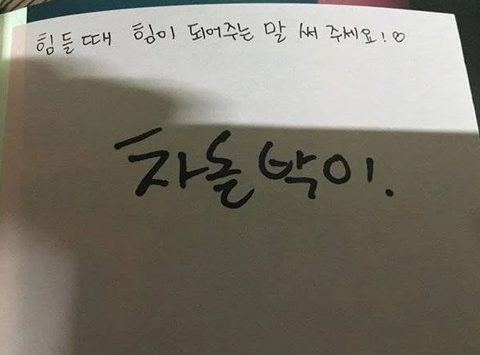 힘들 때 힘이 되어주는 말 써 주세요!♡
차돌박이.